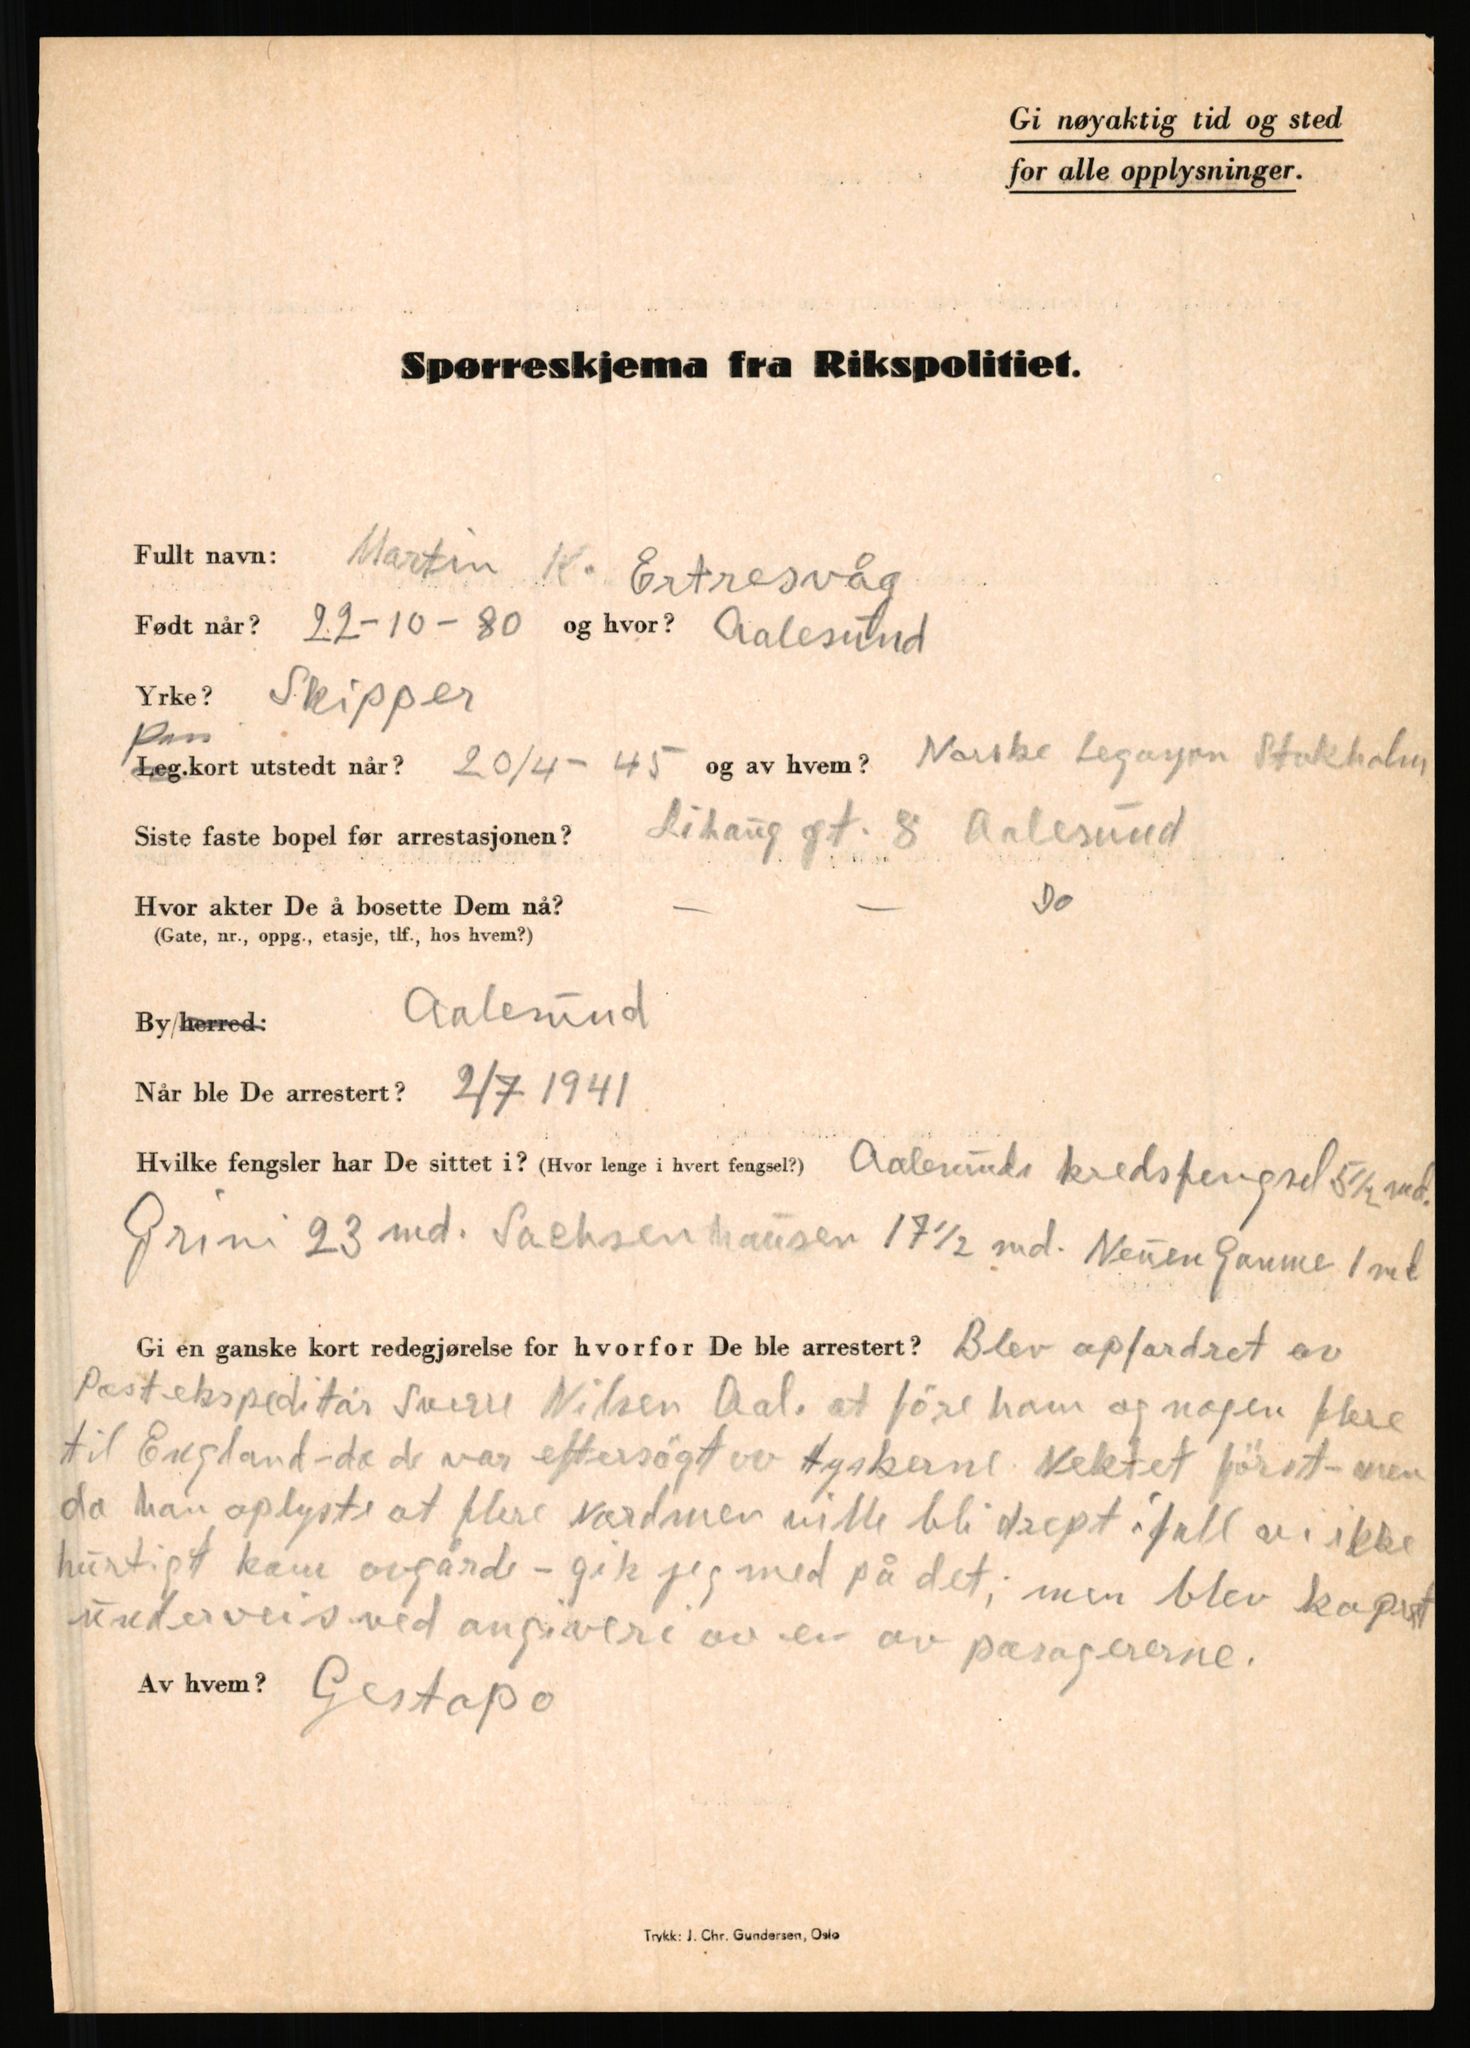 Gi nøyaktig tid og sted
for alle opplysninger.
Spørreskjema fra Rikspolitiet.
Fullt navn: Martin K. Ertresvåg
Født når? 22-10-80 og hvor? Aalesund
Yrke? Skipper
Pass
Leg.kort utstedt når? 20/4-45 og av hvem? Norske Legasjon Stokholm
Siste faste bopel før arrestasjonen? Lihaug gt. 8 Aalesund
Hvor akter De å bosette Dem nå? — — Do
(Gate, nr., oppg., etasje, tlf., hos hvem?)
By/herred: Aalesund
Når ble De arrestert? 2/7 1941
Hvilke fengsler har De sittet i? (Hvor lenge i hvert fengsel?) Aalesunds kredsfengsel 5½ md.
Grini 23 md. Sachsenhausen 17½ md. Neuengamme 1 md
Gi en ganske kort redegjørelse for hvorfor De ble arrestert? Blev opfordret av
Postekspeditör Sverre Nilsen Aal. at före ham og nogen flere
til England - da de var eftersögt av tyskerne. Nektet först - men
da han oplyste at flere Nordmen ville bli drept ifall vi ikke
hurtigt kom avgårde - gik jeg med på det; men blev kapret
underveis ved angiveri av en av pasagererne.
Av hvem? Gestapo
Trykk: J. Chr. Gundersen, Oslo